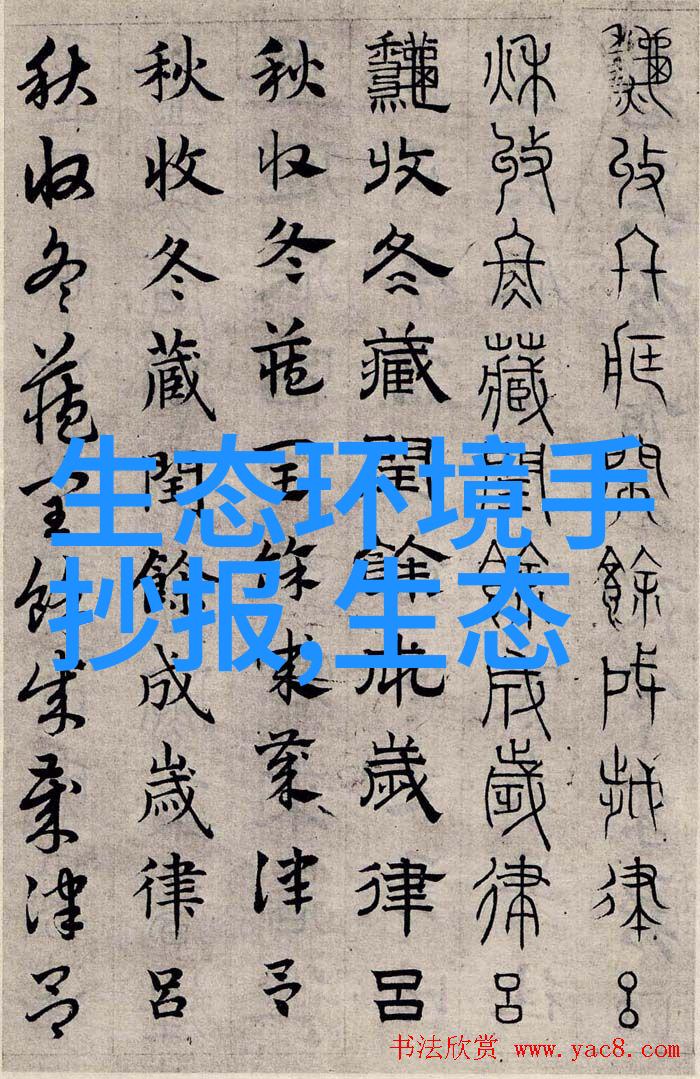 秋收冬藏閏餘成歲律呂
秋收冬藏閏餘成歲律呂
龝收冬藏閏餘成歲律呂
秋收冬藏閏餘成歲律呂
秋收冬蔵閏餘成歲律呂
秋收冬藏閏餘成歲律呂
生态环境手
抄报,生态
书法欣赏 www.yac8.com